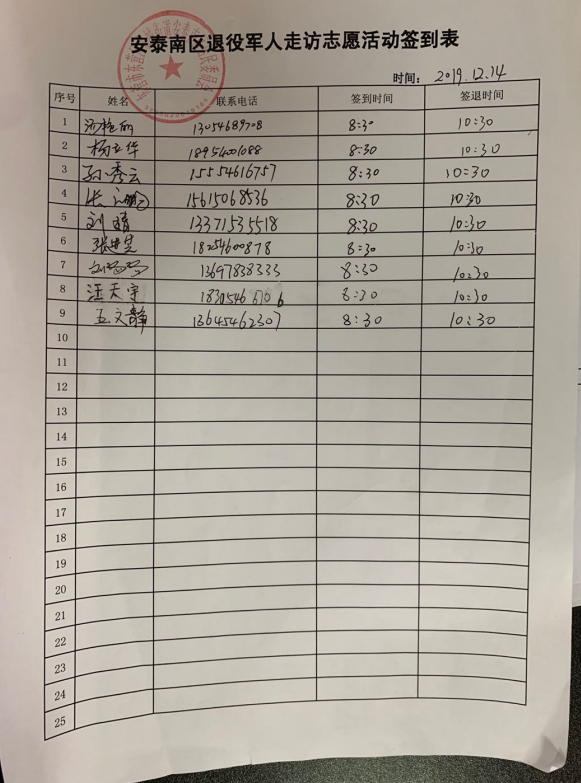 安泰南区退役军人走访志愿活动签到表
时间： 2019.12.14
序号 姓名 联系电话 签到时间 签退时间
1 13054689708 8:30 10:30
2 杨立华 18954001088 8:30 10:30
3 孙秀云 15554616757 8:30 10:30
4 15615068536 8:30 10:30
5 刘晴 13371535518 8:30 10:30
6 18254600878 8:30 10:30
7 13697838333 8:30 10:30
8 汪天宇 8:30 10:30
9 王文静 13645462307 8:30 10:30
10
11
12
13
14
15
16
17
18
19
20
21
22
23
24
25